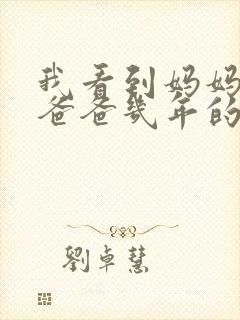 我看到妈妈
爸爸几年的
劉卓慧